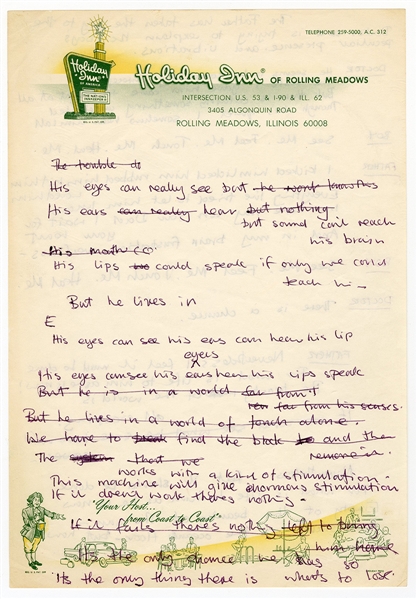 TELEPHONE 259-5000, A.C. 312
Holiday Inn
OF AMERICA
THE NATION'S
INNKEEPER
Holiday Inn® OF ROLLING MEADOWS
INTERSECTION U.S. 53 & I-90 & ILL. 62
3405 ALGONQUIN ROAD
ROLLING MEADOWS, ILLINOIS 60008
The trouble do
His eyes can really see but he wont know this
His ears can really hear but nothing
but sound can't reach
his brain
His mouth co
His lips could speak if only we could
teach him
But he lives in
E
His eyes can see his ears can hear his lip
eyes
His eyes can see his ears hear his lips speak
But he is in a world far from
far from his senses.
But he lives in a world of touch alone.
We have to break find the block to and the
remove it.
The system that we
works with a kind of stimulation.
This machine will give enormous stimulation
If it doesn't work there's nothing.
"Your Host...
from Coast to Coast"
If it fails there's nothing left to bring
him home
It's the only chance we has so
It's the only thing there is what's to lose.